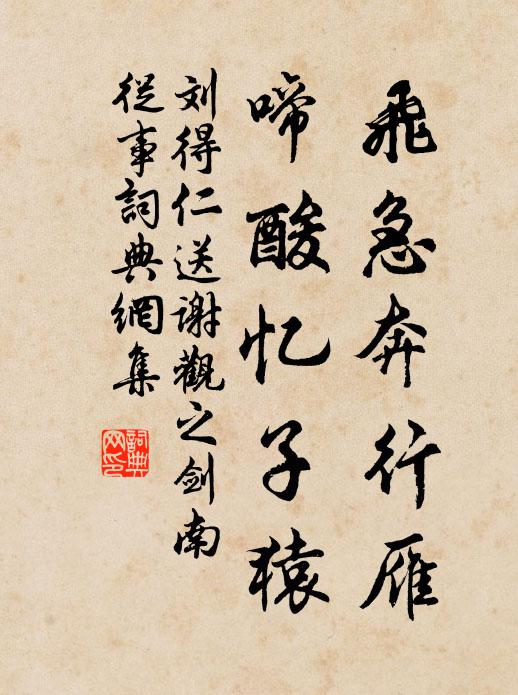 飛急奔行雁
啼酸忆子猿
刘得仁送谢觀之剑南
從事詞典網集
詞典网印